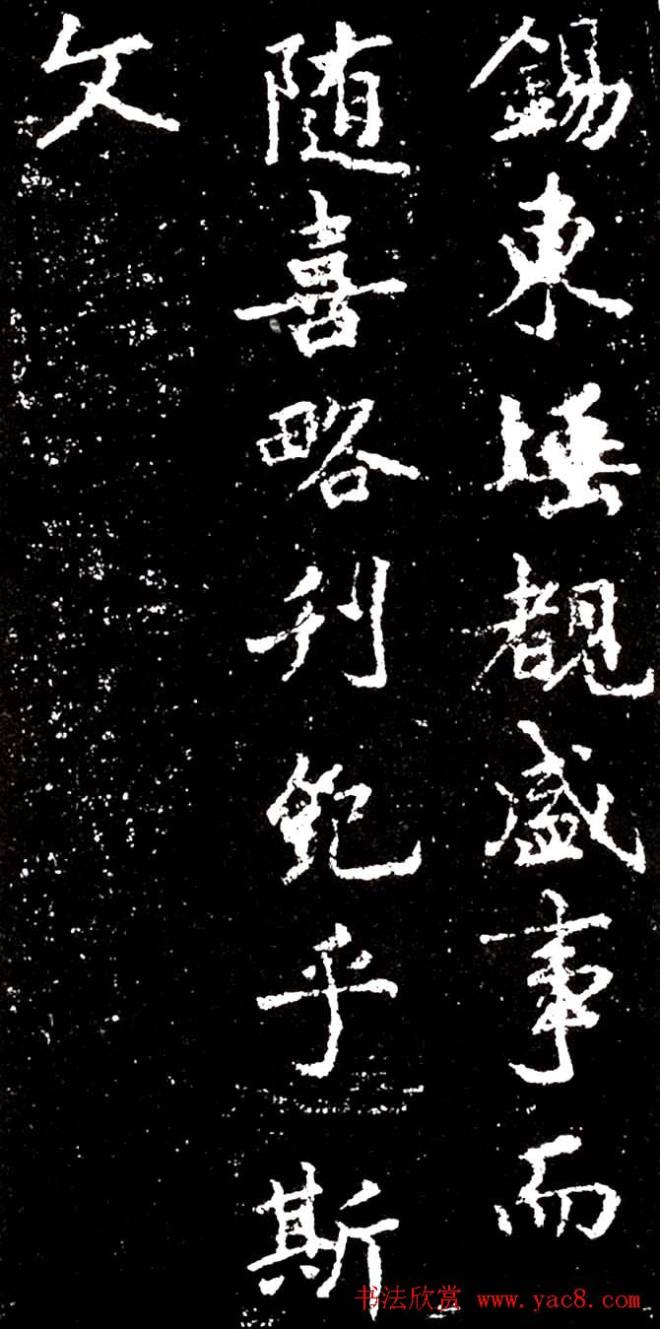 錫東垂覩盛事而
随喜略刊紀乎斯
文
书法欣赏 www.yac8.com